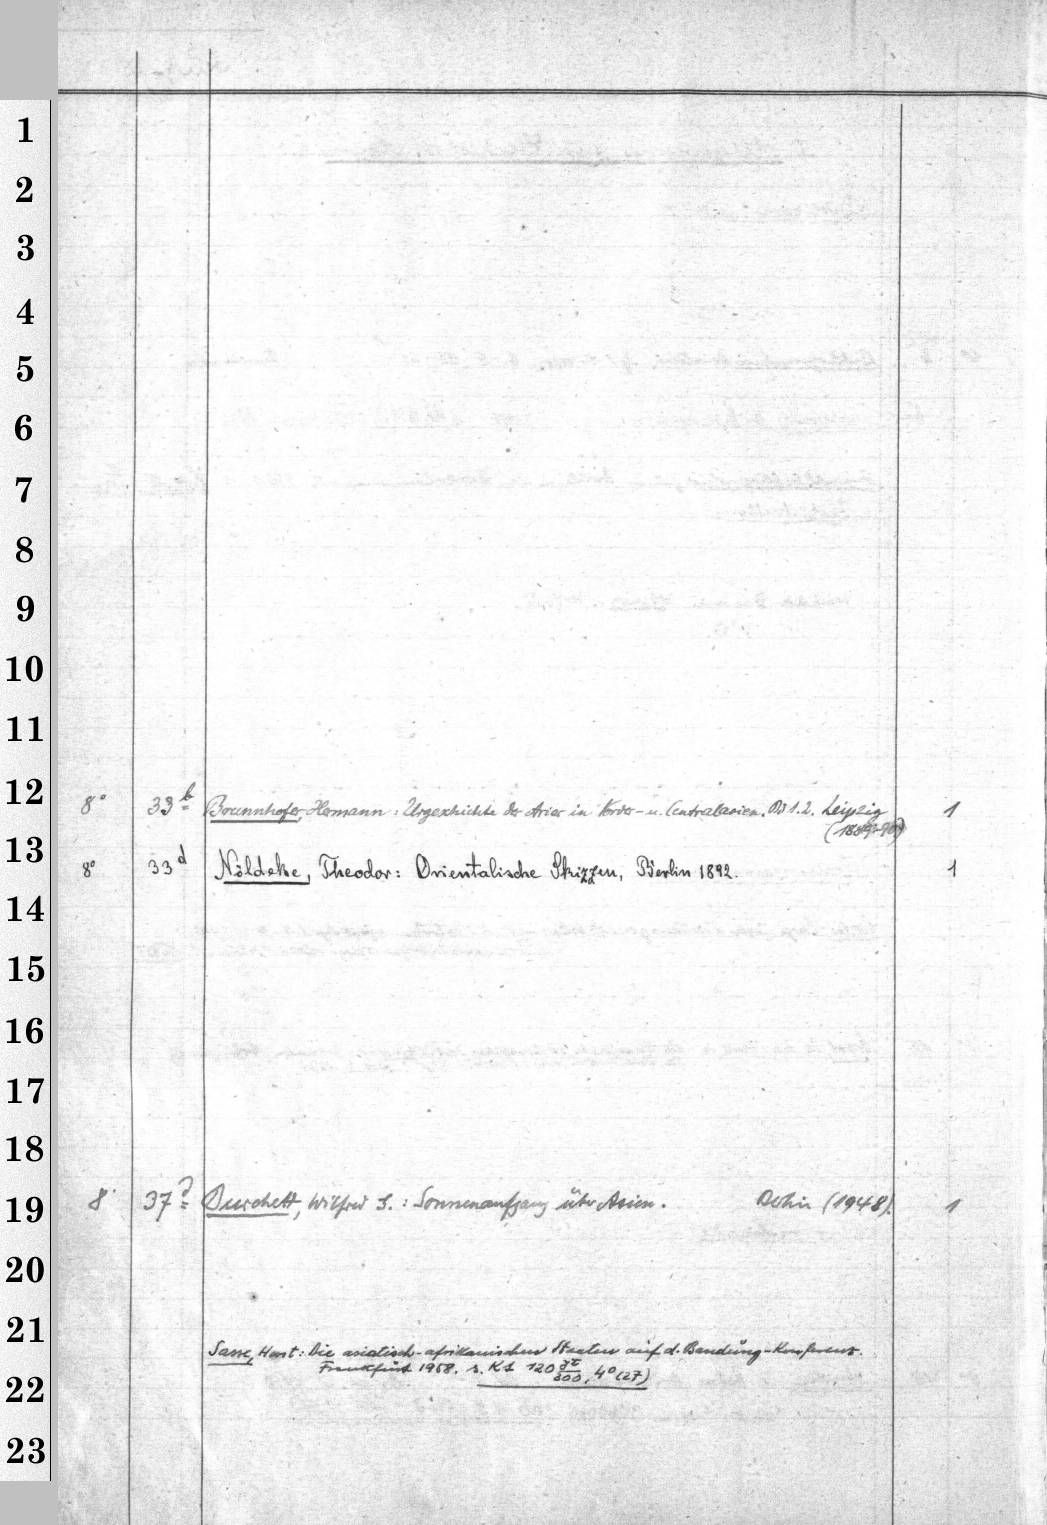 1
2
3
4
5
6
7
8
9
10
11
12
8° 33 b Brunnhofer, Hermann: Urgeschichte der Arier in Vorder- u. Centralasien. Bd 1.2. Leipzig 1
(1889-90)
13
8° 33 d Nöldeke, Theodor: Orientalische Skizzen, Berlin 1892. 1
14
15
16
17
18
19
8° 37 Burchett, Wilfred G.: Sonnenaufgang über Asien. Berlin (1948). 1
20
21
Sasse, Horst: Die asiatisch-afrikanischen Staaten auf d. Bandung-Konferenz.
Frankfurt 1958. s. KS 120 / 300, 4° (27)
22
23